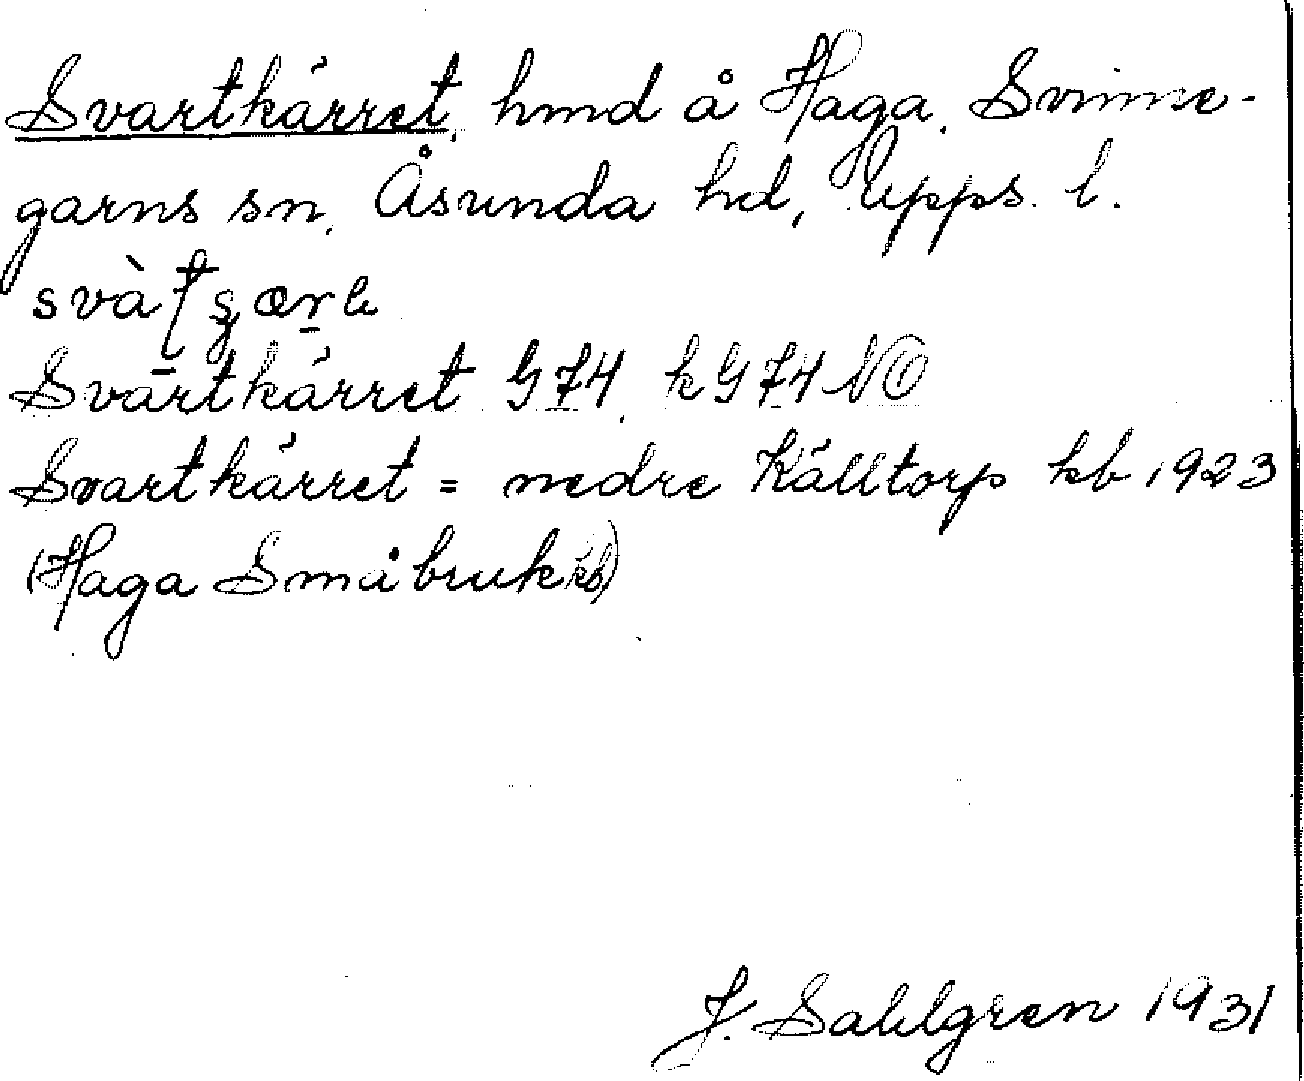 Svartkärret, hmd å Haga, Svinne-
garns sn, Åsunda hd, Upps. l.
Svartkärret G74, k G74 NO
Svartkärret = nedre Källtorp kb 1923
(Haga Småbruk kb)
J. Sahlgren 1931